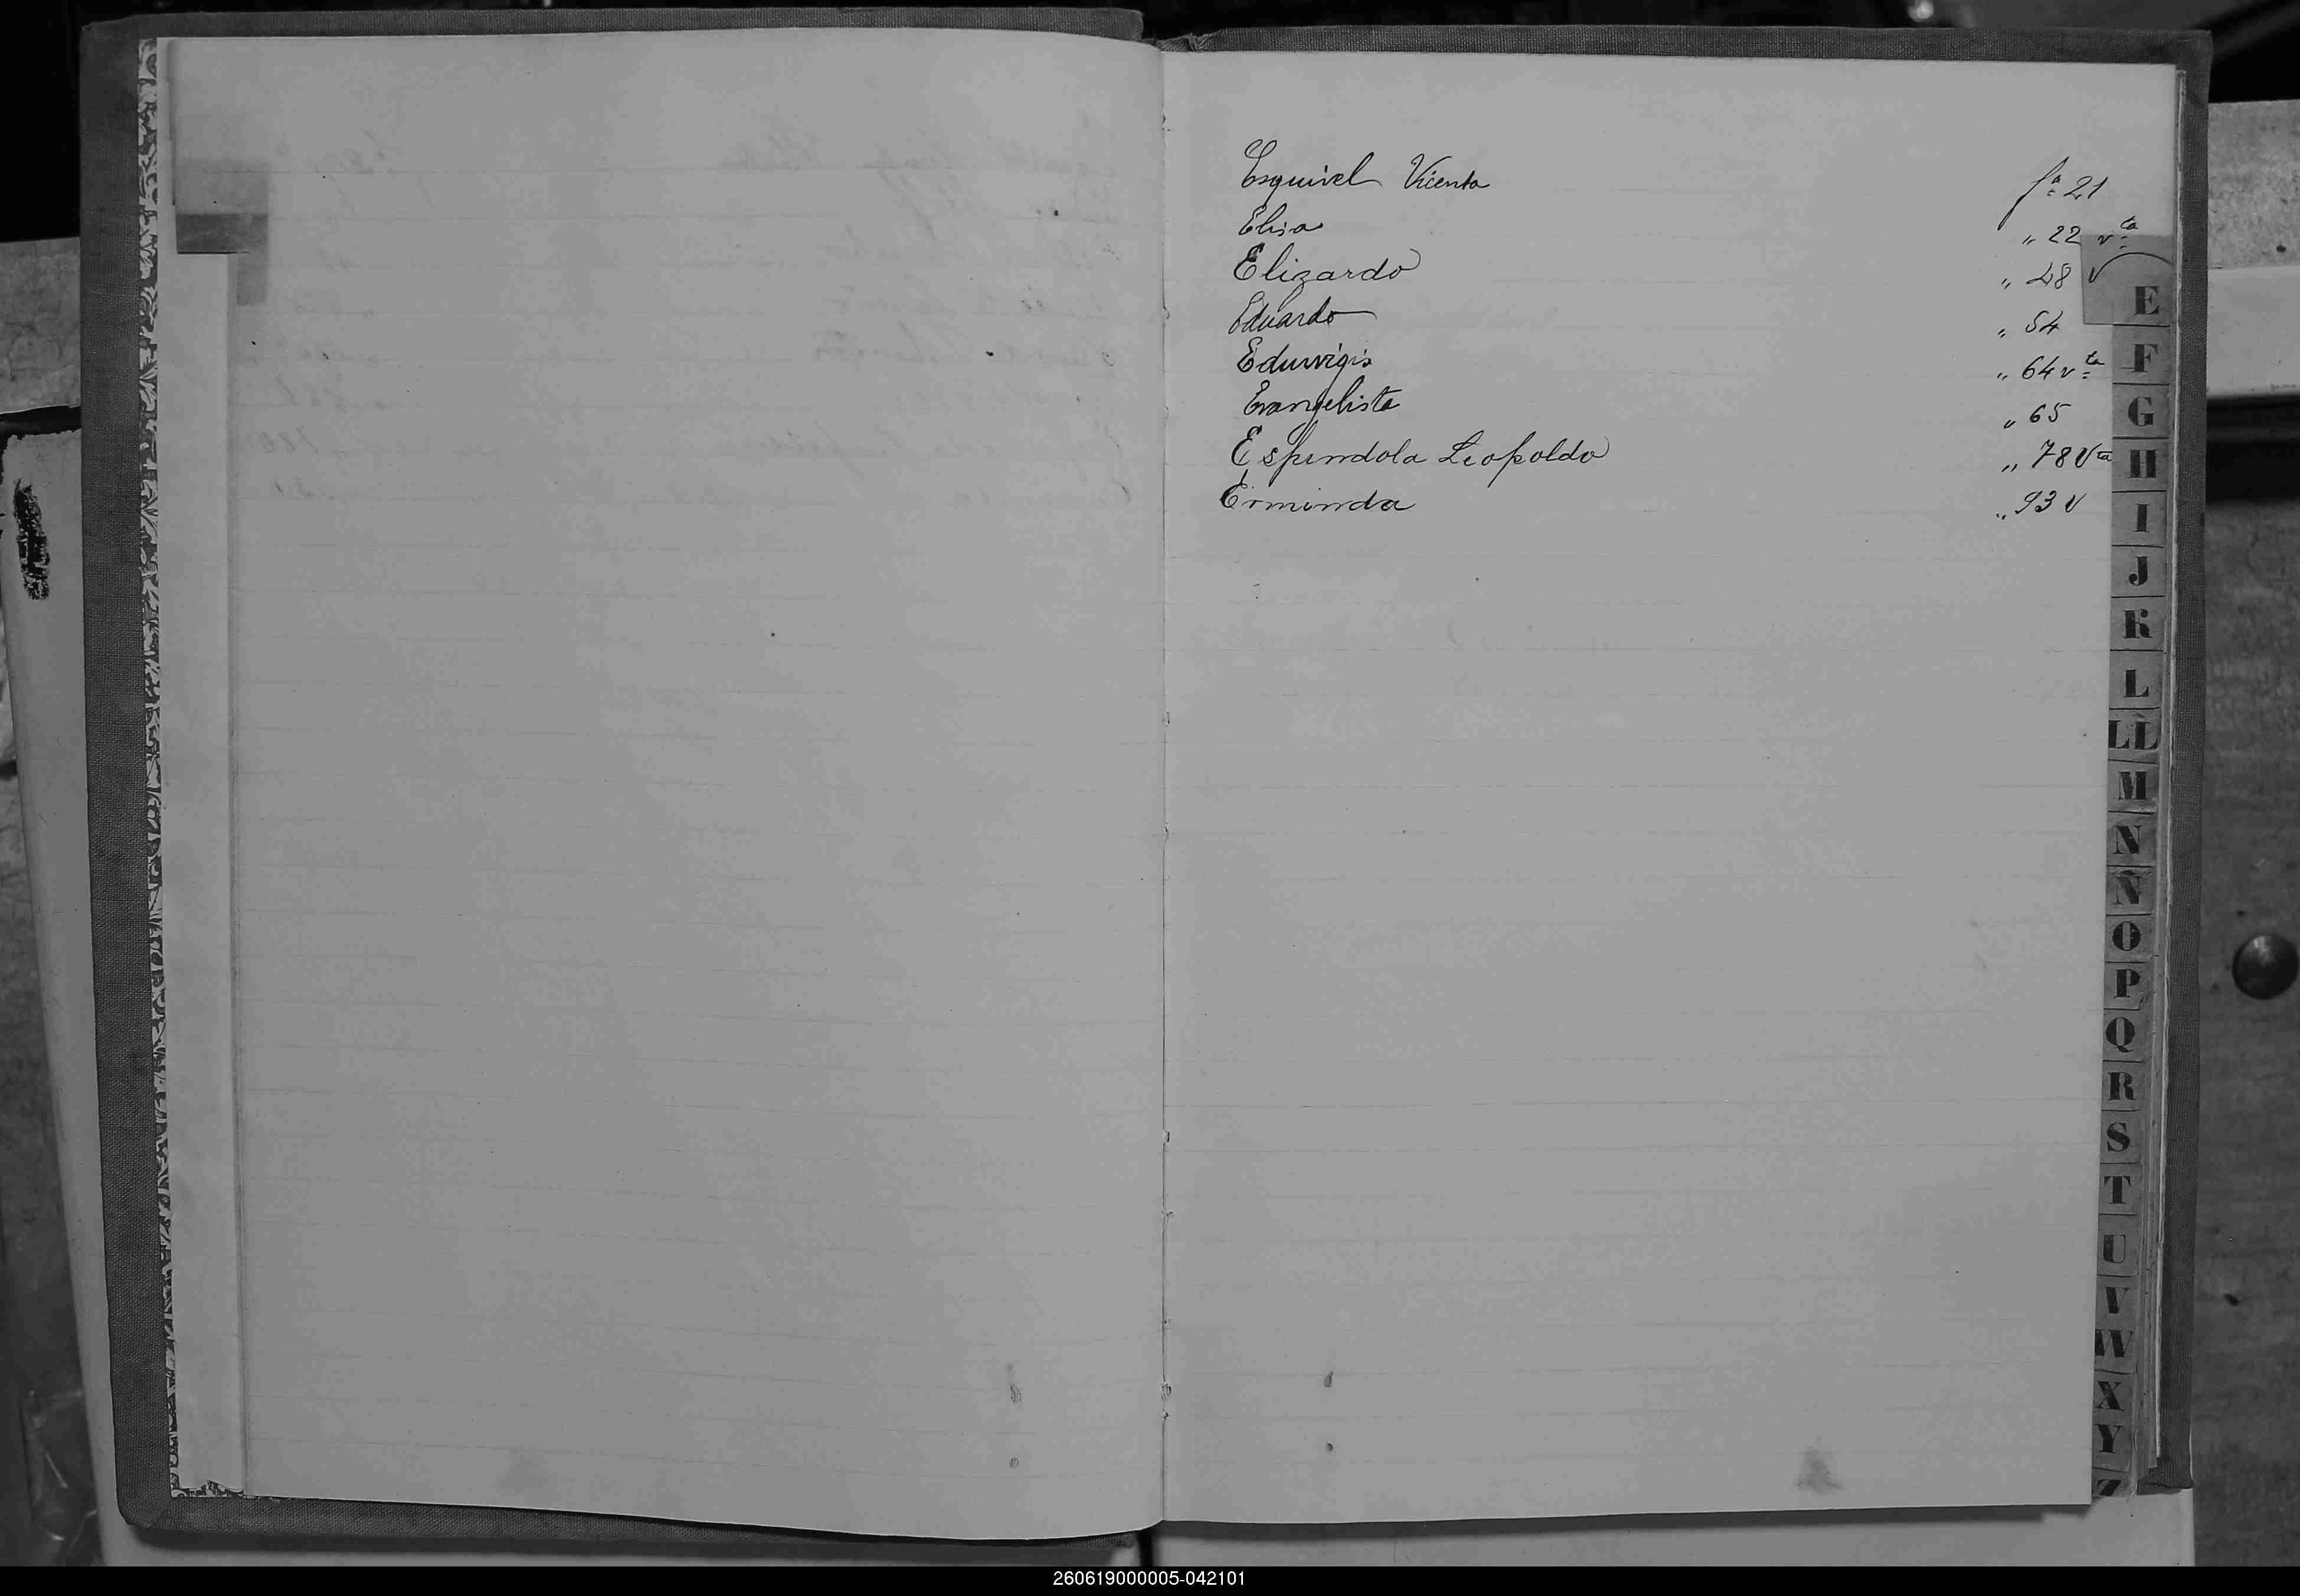 Esquivel Vicenta fª 21
Elisa " 22 vta
Elizardo " 48 v
Eduardo " 54
Eduvigis " 64 vta
Evangelista " 65
Espindola Leopoldo " 78 Vta
Erminda " 93 v
E
F
G
H
I
J
K
L
LL
M
N
Ñ
O
P
Q
R
S
T
U
V
W
X
Y
Z
260619000005-042101